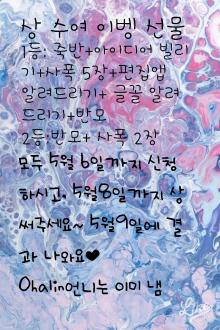 상 수여 이벵 선물
1등: 죽반+아이디어 빌리
기+사폭 5장+편집앱
알려드리기+ 글꼴 알려
드리기+반모
2등:반모+ 사폭 2장
모두 5월 6일까지 신청
하시고, 5월8일까지 상
써주세요~ 5월9일에 결
과 나와요♥
Ohalin언니는 이미 냄